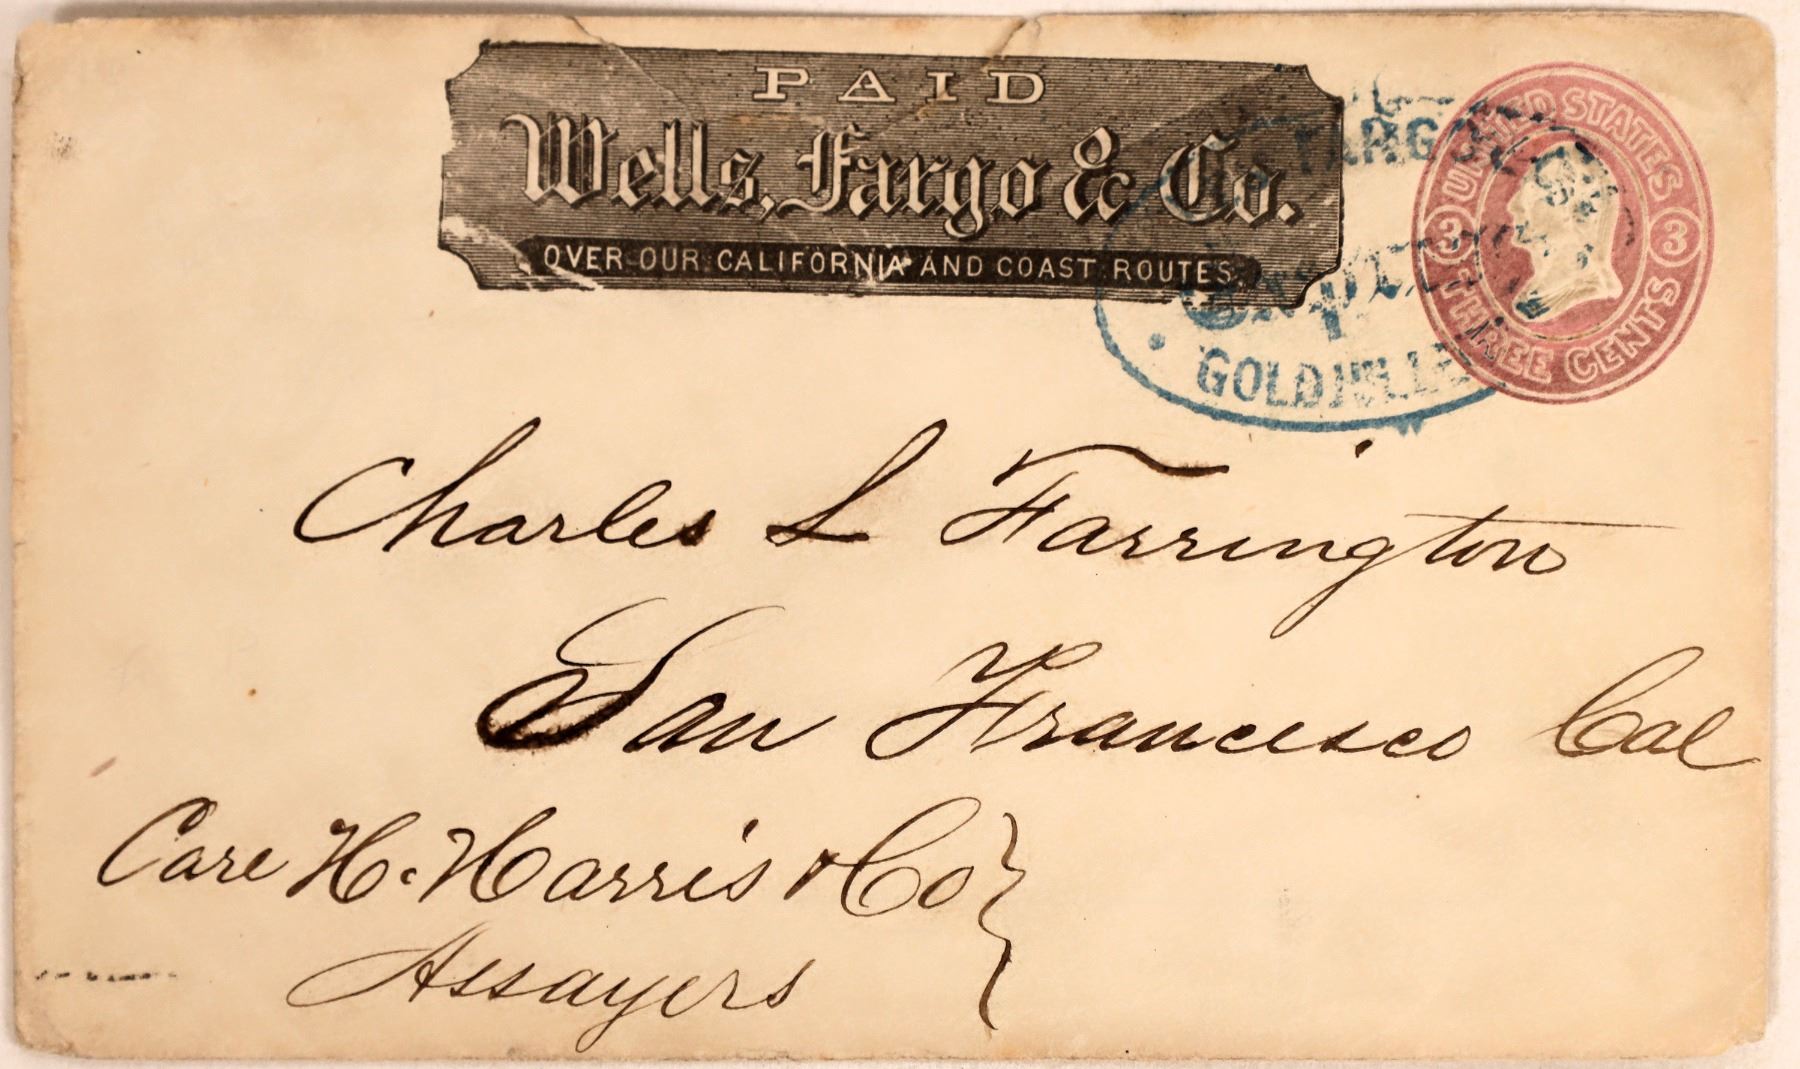 PAID
Wells, Fargo & Co.
OVER OUR CALIFORNIA AND COAST ROUTES
FARGO
EXPRESS
GOLD HILL
UNITED STATES
3 3
THREE CENTS
Charles L Farrington
San Francisco Cal
Care H. Harris & Co
Assayers